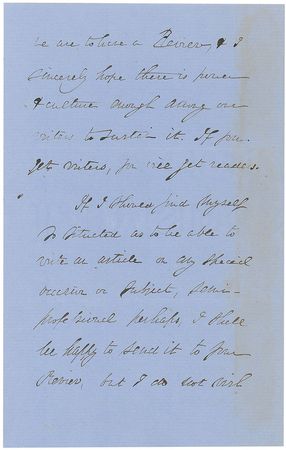 we are to have a Review, & I
sincerely hope there is power
& culture enough among our
writers to sustain it. If you
get writers, you will get readers.
If I should find myself
so situated as to be able to
write an article on any special
occasion or subject, semi-
professional perhaps, I shall
be happy to send it to your
Review, but I do not wish